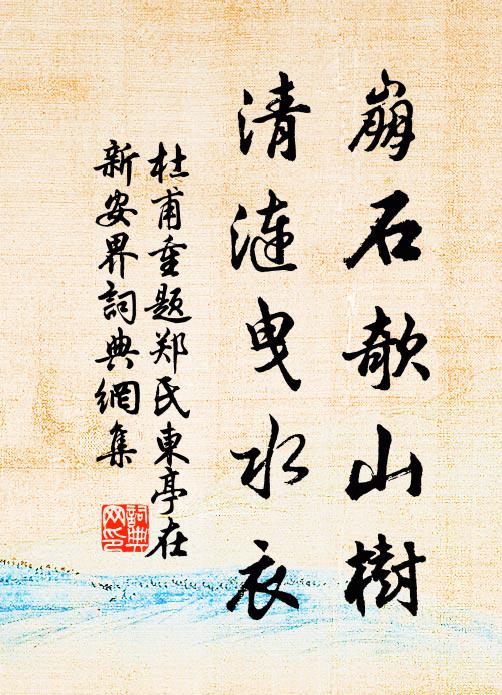 崩石欹山樹
清漣曳水衣
杜甫重题郑氏東亭在
新安界詞典網集
詞典网印